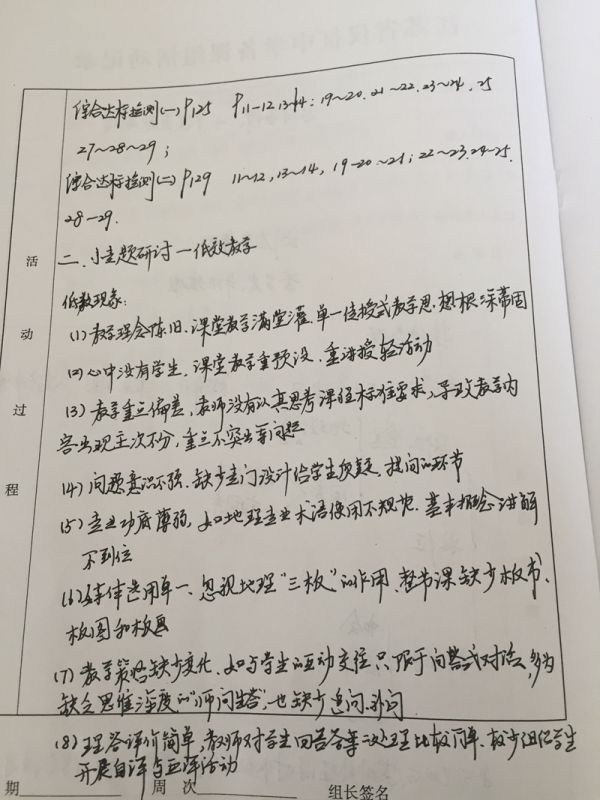 综合达标检测(一) P125 P11-12 13~14: 19~20. 21~22. 23~24. 25
27~28~29;
综合达标检测(二) P129 11~12, 13~14, 19-20~21; 22~23. 24~25.
28-29.
二、小专题研讨—低效教学
低效现象:
(1) 教学理念陈旧、课堂教学满堂灌、单一传授式教学思想根深蒂固
(2) 心中没有学生、课堂教学重预设、重讲授轻活动
(3) 教学重点偏差, 教师没有认真思考课程标准要求, 导致教学内
容出现主次不分, 重点不突出等问题
(4) 问题意识不强、缺少专门设计给学生质疑、提问的环节
(5) 专业功底薄弱, 如地理专业术语使用不规范、基本概念讲解
不到位
(6) 媒体选用单一、忽视地理“三板”的作用、整节课缺少板书、
板图和板画
(7) 教学策略缺少变化、如与学生的互动交往只限于问答式对话, 多为
缺乏思维深度的“师问生答”, 也缺少追问、补问
(8) 理答评价简单, 教师对学生回答等处理比较简单、较少组织学生
开展自评与互评活动
活
动
过
程
期 周 次 组长签名